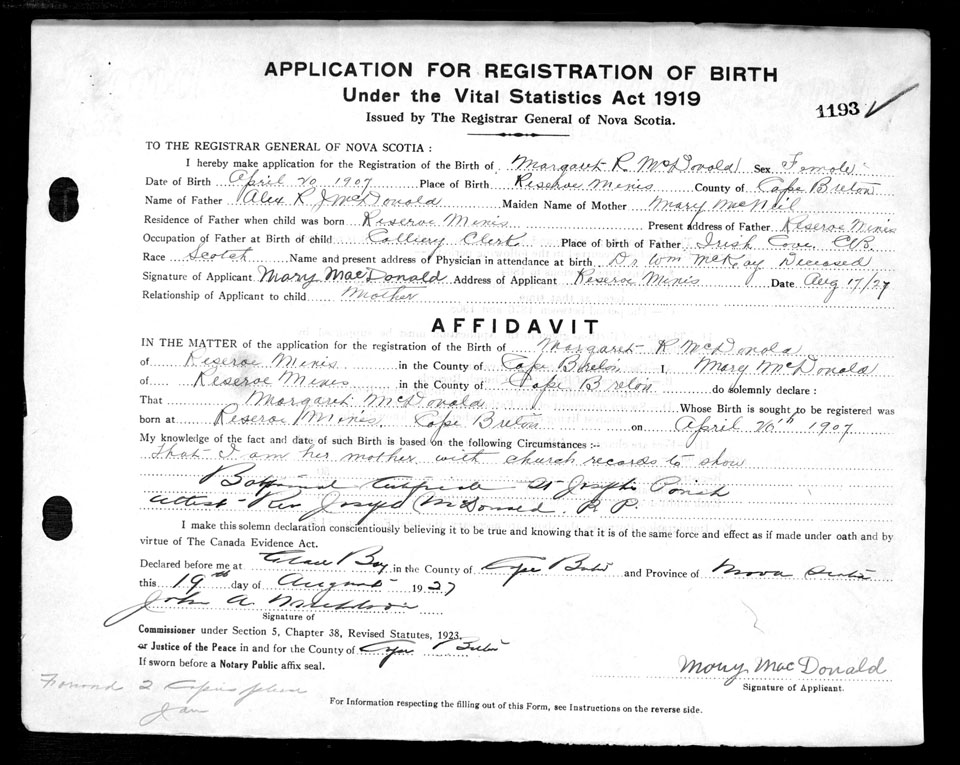 APPLICATION FOR REGISTRATION OF BIRTH
Under the Vital Statistics Act 1919
1193 ✓
Issued by The Registrar General of Nova Scotia.
TO THE REGISTRAR GENERAL OF NOVA SCOTIA:
I hereby make application for the Registration of the Birth of Margaret R. McDonald Sex Female
Date of Birth April 20 1907 Place of Birth Reserve Mines County of Cape Breton
Name of Father Alex R J McDonald Maiden Name of Mother Mary McNeil
Residence of Father when child was born Reserve Mines Present address of Father Reserve Mines
Occupation of Father at Birth of child Colliery Clerk Place of birth of Father Irish Cove C.B.
Race Scotch Name and present address of Physician in attendance at birth Dr Wm McKay Deceased
Signature of Applicant Mary MacDonald Address of Applicant Reserve Mines Date Aug 17/27
Relationship of Applicant to child Mother
AFFIDAVIT
IN THE MATTER of the application for the registration of the Birth of Margaret R McDonald
of Reserve Mines in the County of Cape Breton I, Mary McDonald
of Reserve Mines in the County of Cape Breton do solemnly declare:
That Margaret McDonald Whose Birth is sought to be registered was
born at Reserve Mines, Cape Breton on April 20th 1907
My knowledge of the fact and date of such Birth is based on the following Circumstances :-
That I am her mother with church records to show
Baptismal Certificate St Joseph's Parish
attest Rev Joseph McDonald. P. P.
I make this solemn declaration conscientiously believing it to be true and knowing that it is of the same force and effect as if made under oath and by
virtue of The Canada Evidence Act.
Declared before me at Glace Bay in the County of Cape Breton and Province of Nova Scotia
this 19th day of August 1927
John A.
Signature of
Commissioner under Section 5, Chapter 38, Revised Statutes, 1923.
or Justice of the Peace in and for the County of Cape Breton
If sworn before a Notary Public affix seal.
Mary MacDonald
Signature of Applicant.
Forward 2 Copies please
For Information respecting the filling out of this Form, see Instructions on the reverse side.